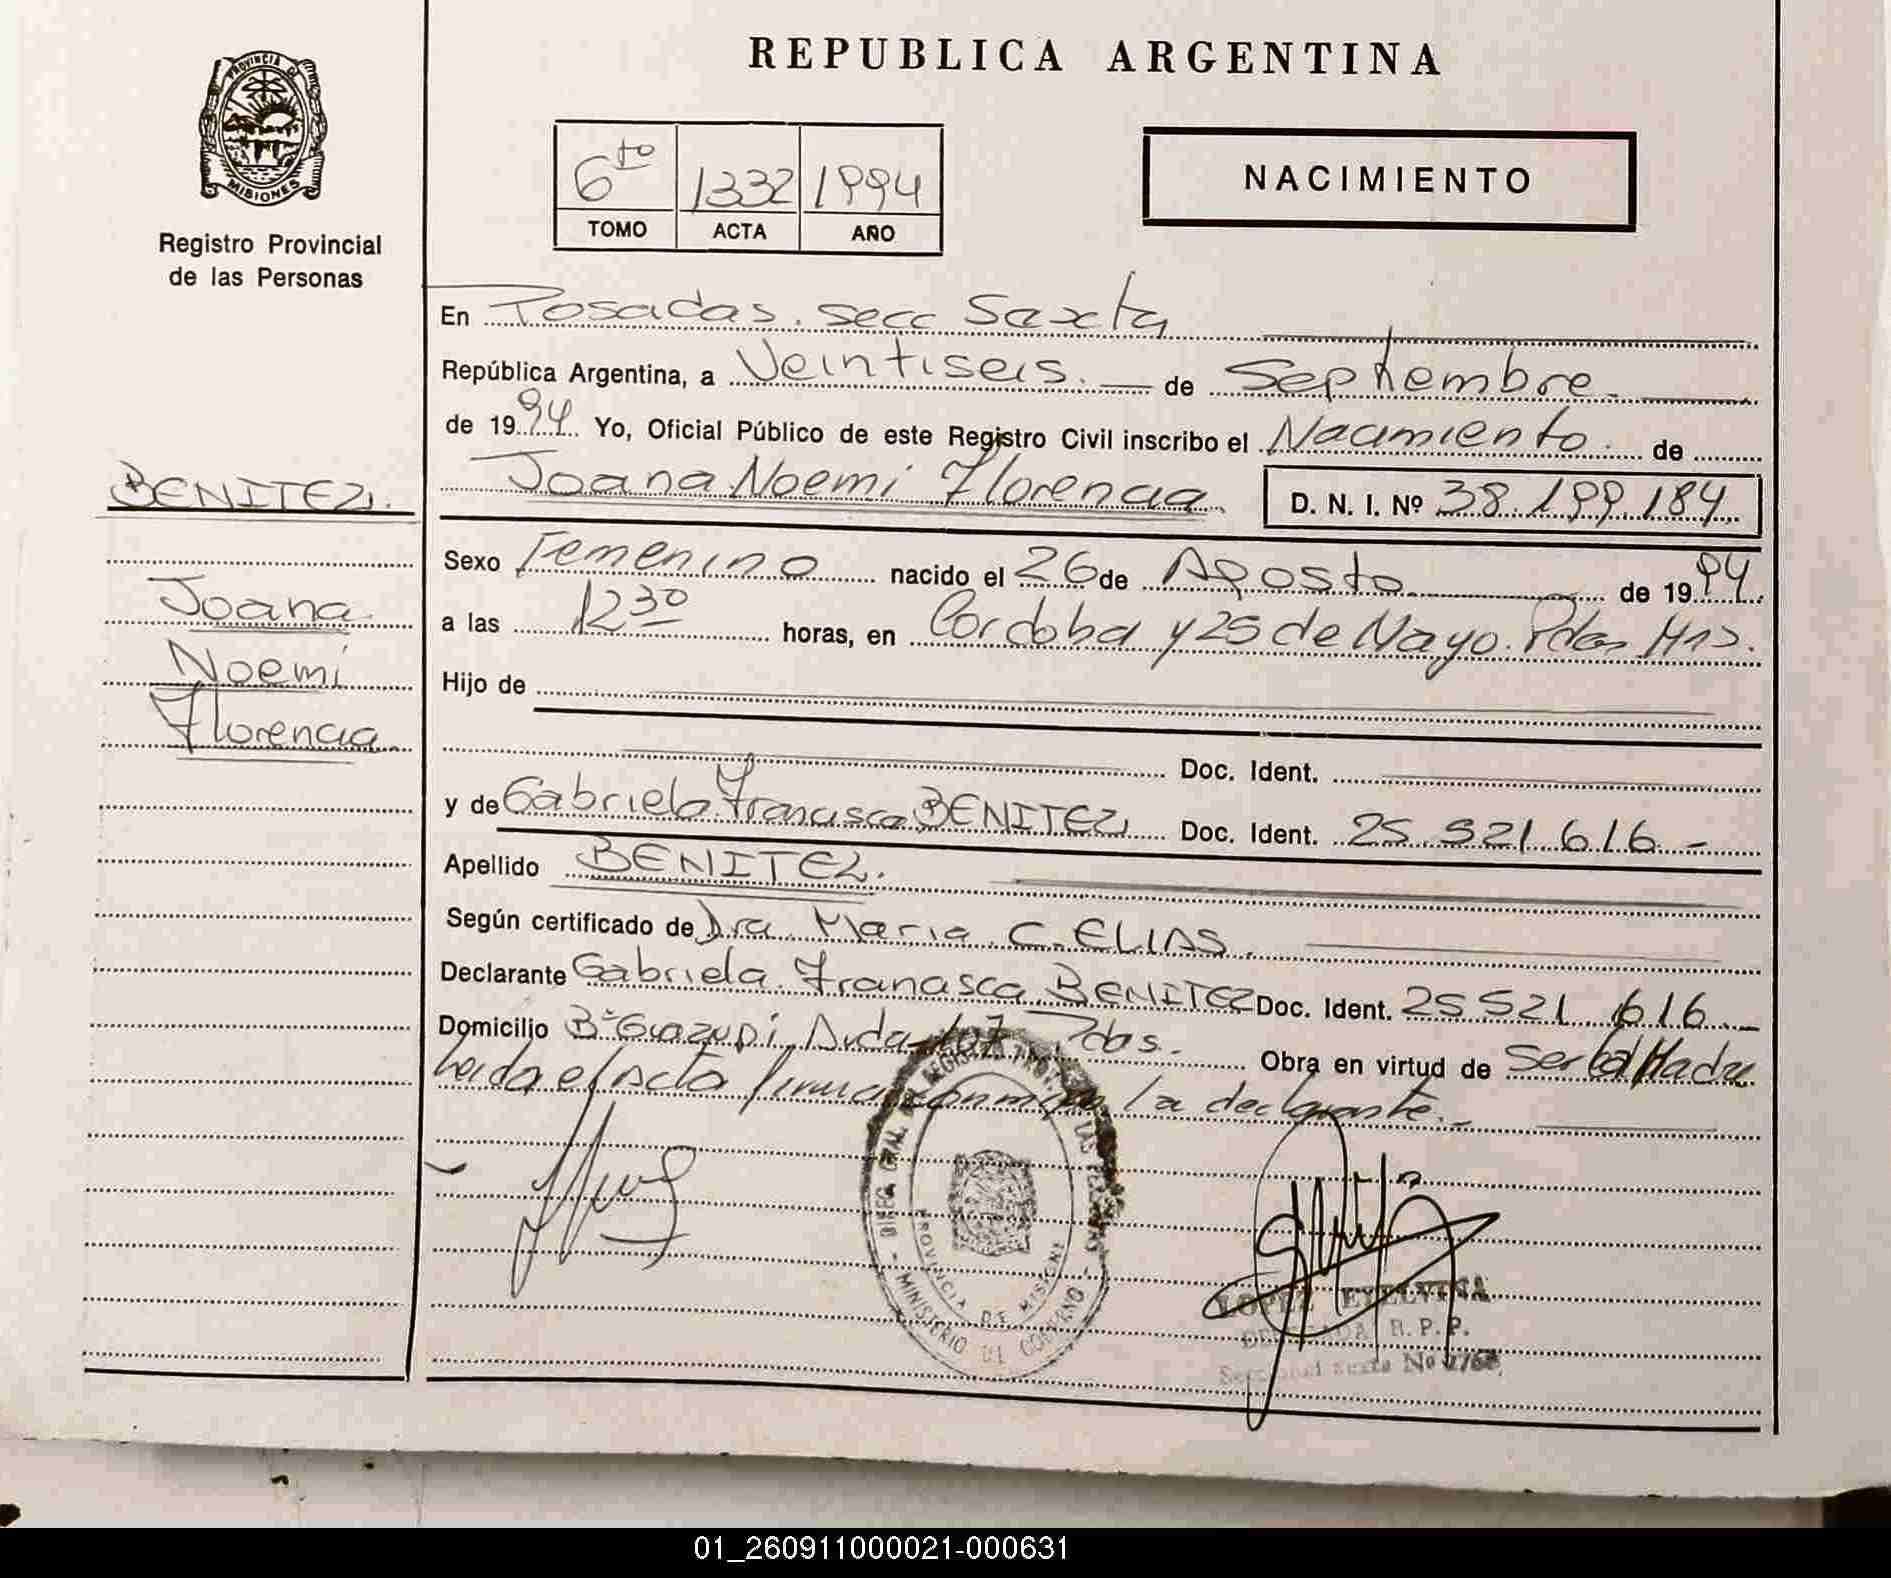 REPUBLICA ARGENTINA
PROVINCIA DE
MISIONES
Registro Provincial
de las Personas
6to 1332 1994
TOMO ACTA AÑO
NACIMIENTO
En Posadas. secc Sexta
República Argentina, a Veintiseis. de Septiembre.
de 1994. Yo, Oficial Público de este Registro Civil inscribo el Nacimiento. de
Joana Noemi Florencia. D. N. I. Nº 38.199.184
BENITEZ.
Joana
Noemi
Florencia
Sexo Femenino nacido el 26 de Agosto de 1994
a las 12 30 horas, en Cordoba y 25 de Mayo. Pdas Mns.
Hijo de
Doc. Ident.
y de Gabriela Francisca BENITEZ Doc. Ident. 25 521 616 -
Apellido BENITEZ.
Según certificado de Dra. Maria. C. ELIAS.
Declarante Gabriela Francisca BENITEZ Doc. Ident. 25 521 616 -
Domicilio Bº Guazupi Avda Pdas. Obra en virtud de Ser la Madre
leida el acta firma conmigo la declarante.-
DIREC. GRAL. DEL REGISTRO PROV. DE LAS PERSONAS
PROVINCIA DE MISIONES
MINISTERIO DE GOBIERNO
LOPEZ ETELVINA
DELEGADA R. P. P.
Seccional sexta No
01_260911000021-000631